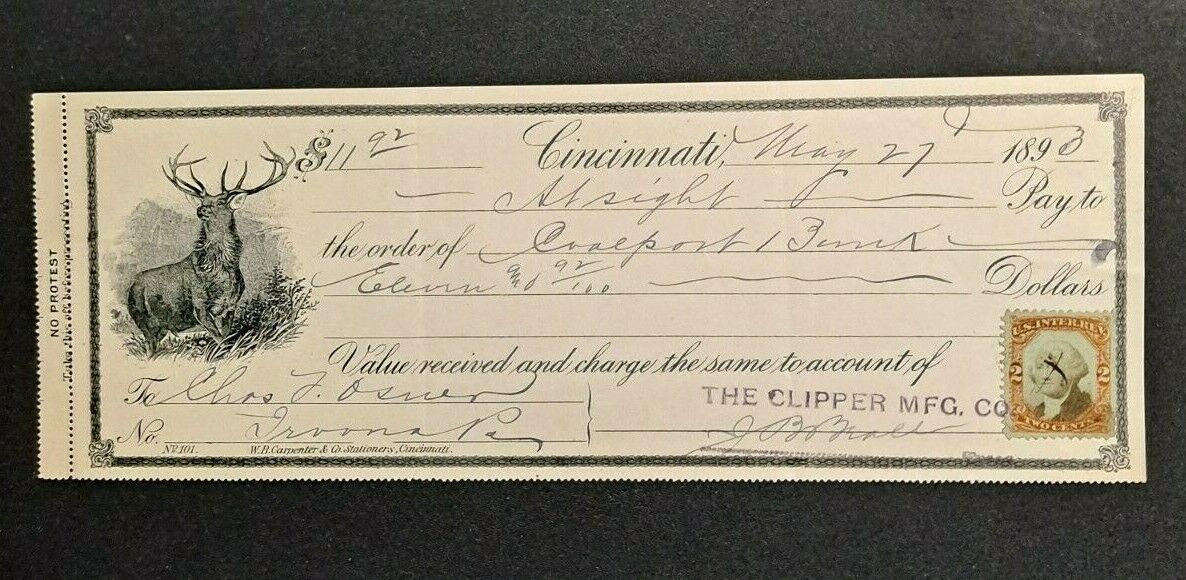 NO PROTEST
$ 11 92 Cincinnati, May 27 1893
At sight Pay to
the order of Coalport Bank
Eleven and 92/100 Dollars
Value received and charge the same to account of
To Chas F. Osner THE CLIPPER MFG. CO
No. Irvona Pa J B
No. 101. W.B. Carpenter & Co. Stationers, Cincinnati.
U.S. INTER. REV.
2 2
TWO CENTS